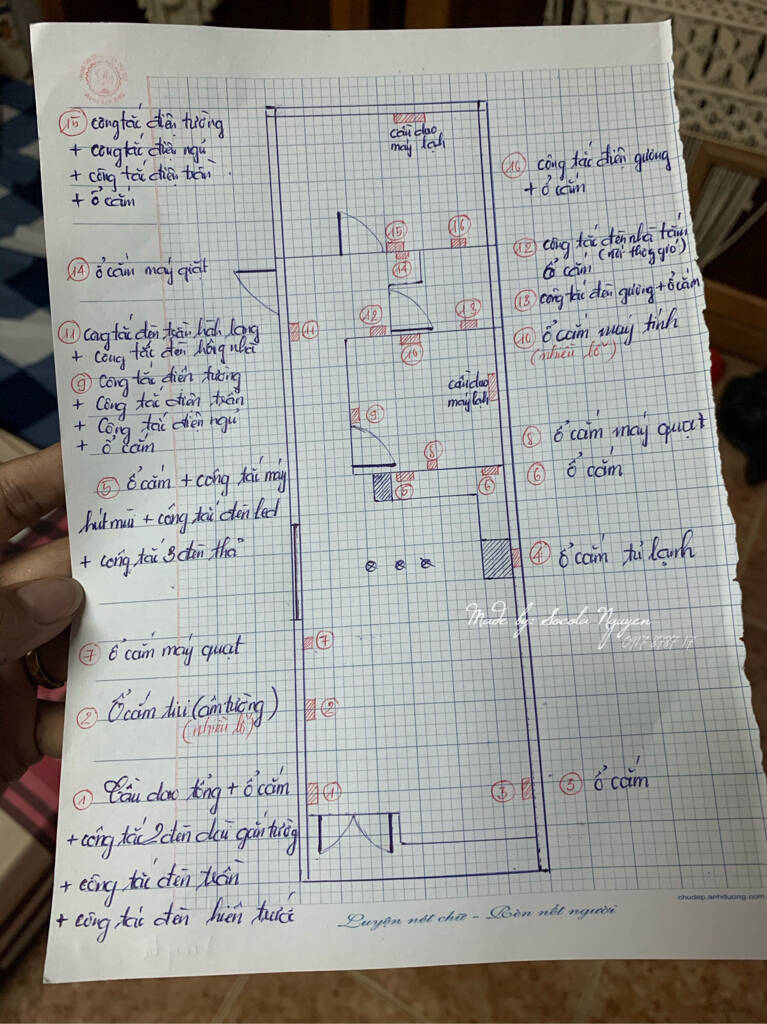 15 công tắc điện tường
+ công tắc điện ngủ
+ công tắc điện trần
+ ổ cắm
14 ổ cắm máy giặt
11 công tắc đèn trần hành lang
+ công tắc đèn hông nhà
9 công tắc điện tường
+ công tắc điện trần
+ công tắc điện ngủ
+ ổ cắm
5 ổ cắm + công tắc máy
hút mùi + công tắc đèn led
+ công tắc 3 đèn thả
7 ổ cắm máy quạt
2 ổ cắm tivi (âm tường)
(nhiều lỗ)
1 Cầu dao tổng + ổ cắm
+ công tắc 2 đèn dài gắn tường
+ công tắc đèn trần
+ công tắc đèn hiên trước
cầu dao
máy lạnh
15
16
14
11
12
13
10
cầu dao
máy lạnh
9
8
5
6
7
2
1
3
16 công tắc điện gương
+ ổ cắm
12 công tắc đèn nhà tắm
ổ cắm (nối thông gió)
13 công tắc đèn gương + ổ cắm
10 ổ cắm máy tính
(nhiều lỗ)
8 ổ cắm máy quạt
6 ổ cắm
4 ổ cắm tủ lạnh
Made by: Socola Nguyen
3 ổ cắm
chudep.anhduong.com
Luyện nét chữ - Rèn nết người